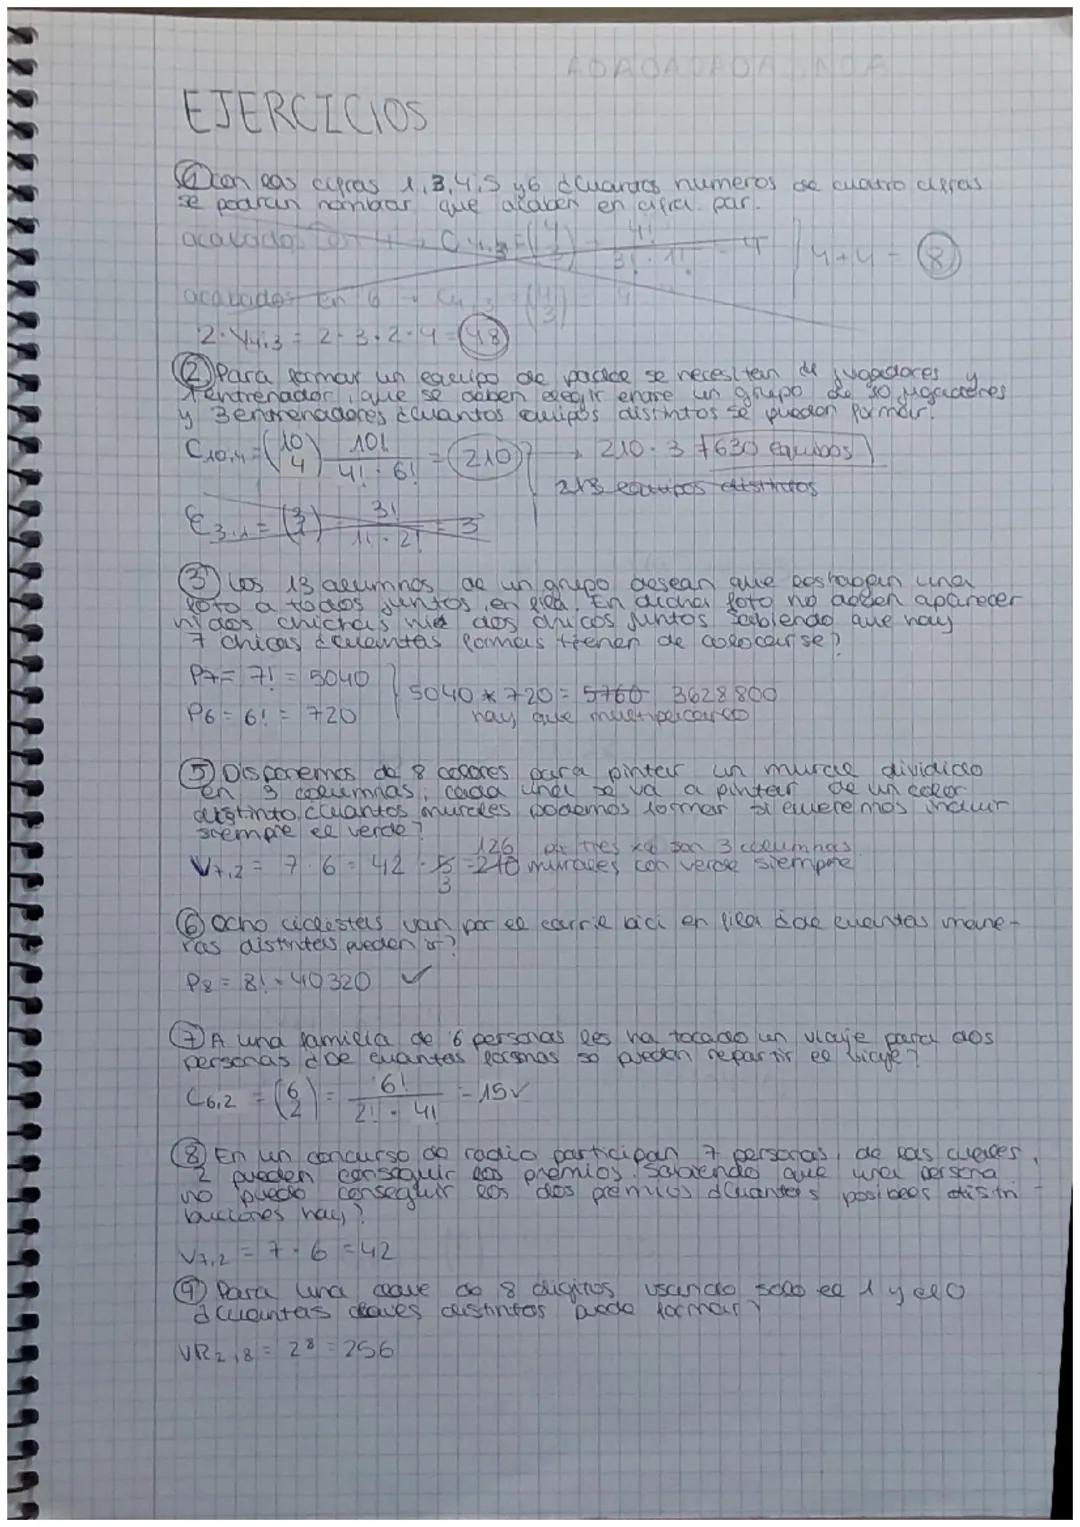 EJERCICIOS
① con las cifras 1,3,4,5 y 6 ¿cuantos numeros de cuatro cifras
se podrán nombrar que acaben en cifra par.
acabados en 4 → C4,3 = (4 3) = 4! / 3! · 1! = 4 } 4+4 = 8
acabados en 6 → C4,3 (4 3) = 4
2 · V4,3 = 2 · 3 · 2 · 4 = 48
② Para formar un equipo de padel se necesitan 4 jugadores y
1 entrenador, que se deben elegir entre un grupo de 10 jugadores
y 3 entrenadores ¿cuantos equipos distintos se pueden formar?
C10,4 = (10 4) 10! / 4! · 6! = 210 } → 210 · 3 = 630 equipos
213 equipos distintos
C3,1 = (3 1) = 3! / 1! · 2! = 3
③ Los 13 alumnos de un grupo desean que les hagan una
foto a todos juntos, en fila. En dicha foto no deben aparecer
ni dos chichas ni dos chicos juntos sabiendo que hay
7 chicas ¿cuantas formas tienen de colocarse?
P7 = 7! = 5040
} 5040 * 720 = 5760 3628800
P6 = 6! = 720 hay que multiplicarlo
⑤ Disponemos de 8 colores para pintar un mural dividido
en 3 columnas, cada una se va a pintar de un color
distinto ¿cuantos murales podemos formar si queremos incluir
siempre el verde?
126 de tres xq son 3 columnas
V7,2 = 7 · 6 = 42 · 5 = 210 murales con verde siempre
3
⑥ Ocho ciclistas van por el carril bici en fila ¿de cuantas mane-
ras distintas pueden ir?
P8 = 8! = 40320 ✓
⑦ A una familia de 6 personas les ha tocado un viaje para dos
personas ¿De cuantas formas se pueden repartir el viaje?
C6,2 = (6 2) = 6! / 2! · 4! = 15 ✓
⑧ En un concurso de radio participan 7 personas, de las cuales,
2 pueden conseguir los premios. Sabiendo que una persona
no puede conseguir los dos premios ¿Cuantas posibles distri-
buciones hay?
V7,2 = 7 · 6 = 42
⑨ Para una clave de 8 digitos, usando solo el 1 y el 0
¿cuantas claves distintas puedo formar?
VR2,8 = 2⁸ = 256